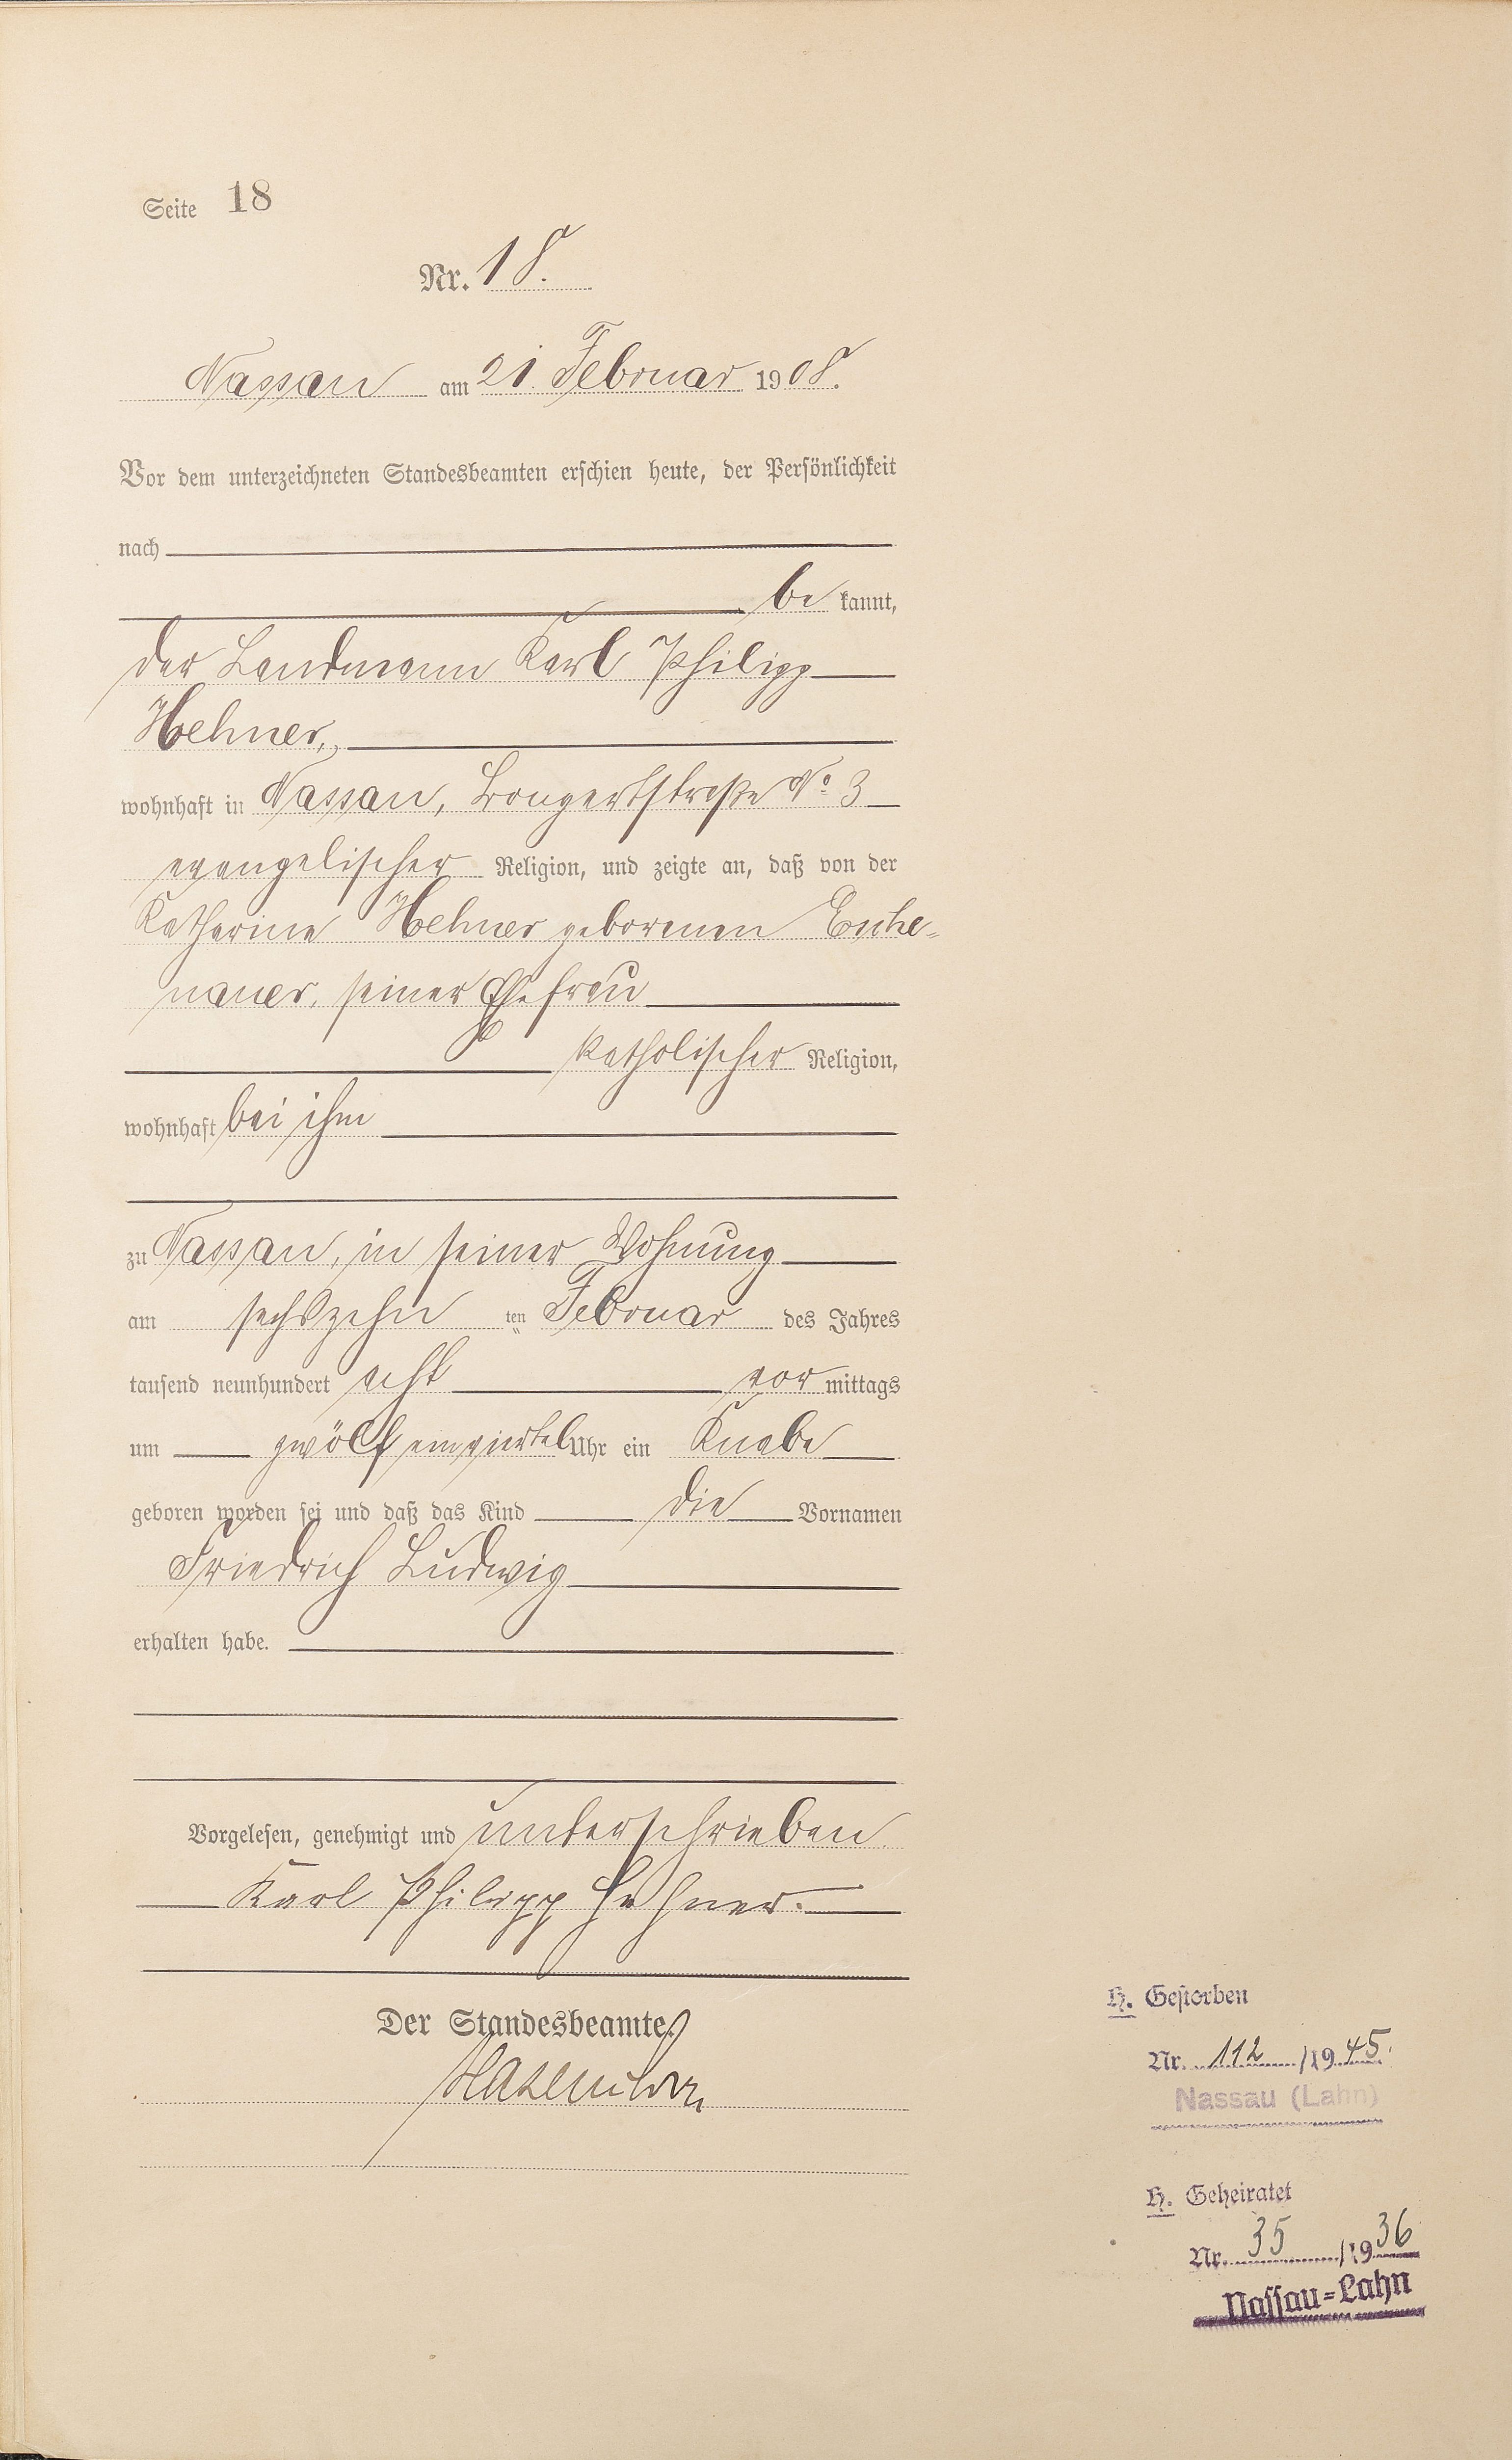 Seite 18
Nr. 18.
Nassau am 21. Februar 1908.
Vor dem unterzeichneten Standesbeamten erschien heute, der Persönlichkeit
nach
be kannt,
der Landmann Karl Philipp
Hehner,
wohnhaft in Nassau, Bongertstraße No 3
evangelischer Religion, und zeigte an, daß von der
Katharina Hehner geborenen Esche=
nauer, seiner Ehefrau
katholischer Religion,
wohnhaft bei ihm
zu Nassau, in seiner Wohnung
am sechszehn ten Februar des Jahres
tausend neunhundert acht vor mittags
um zwölf einviertel Uhr ein Knabe
geboren worden sei und daß das Kind die Vornamen
Friedrich Ludwig
erhalten habe.
Vorgelesen, genehmigt und unterschrieben
Karl Philipp Hehner.
Der Standesbeamte.
H. Gestorben
Nr. 112 /1945.
Nassau (Lahn)
H. Geheiratet
Nr. 35 /1936
Nassau=Lahn